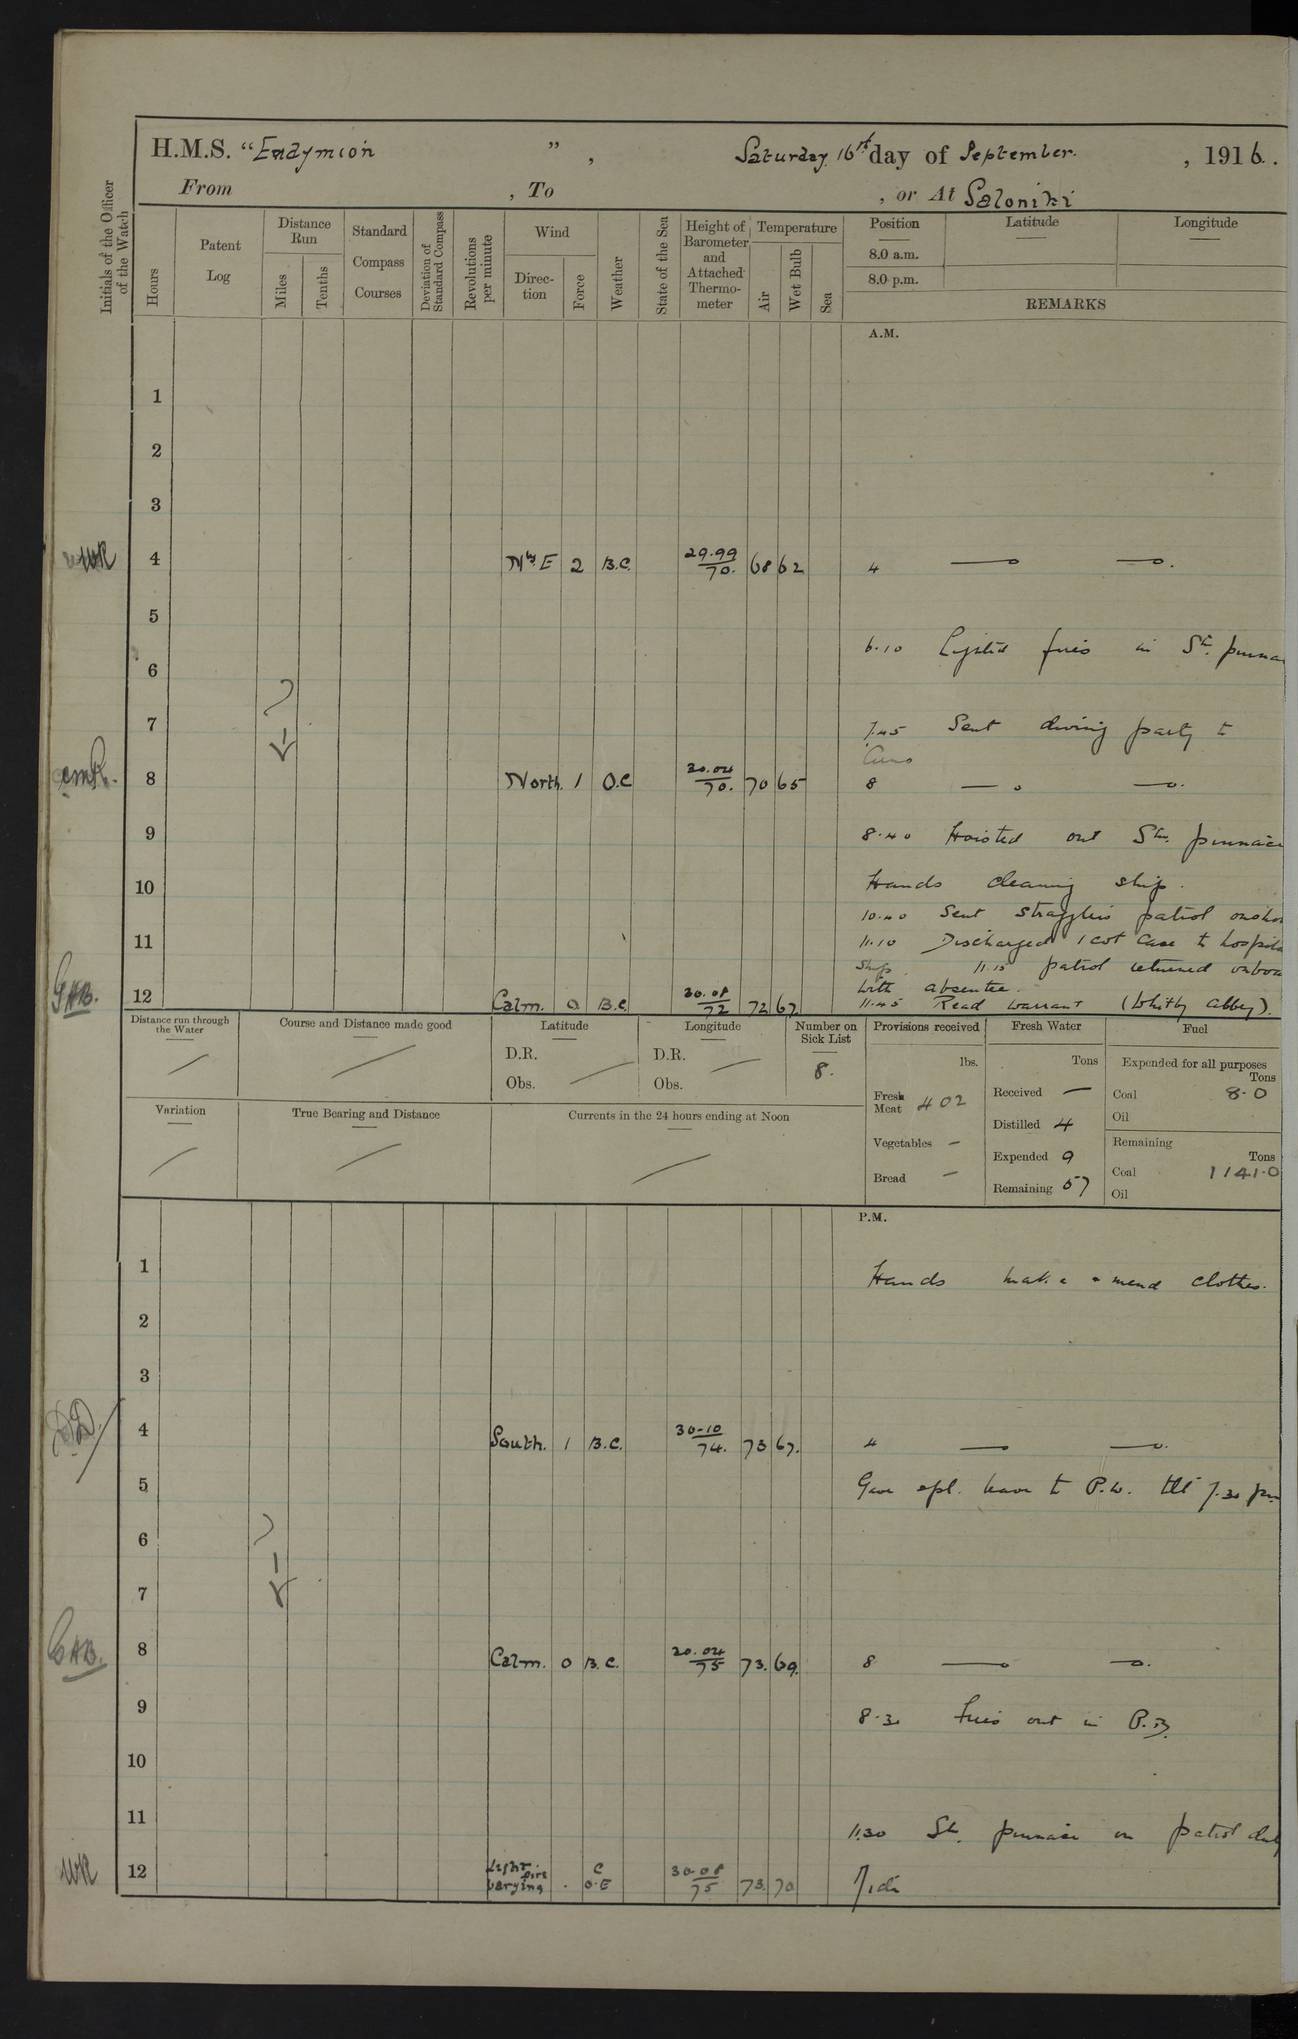 H.M.S. "Endymion ", Saturday 16th day of September. , 1916.
From , To , or At Saloniki
Initials of the Officer of the Watch
Hours
Patent Log
Distance Run
Miles
Tenths
Standard Compass Courses
Deviation of Standard Compass
Revolutions per minute
Wind
Direction
Force
Weather
State of the Sea
Height of Barometer and Attached Thermometer
Temperature
Air
Wet Bulb
Sea
Position Latitude Longitude
8.0 a.m.
8.0 p.m.
REMARKS
A.M.
1
2
3
WR 4 N by E 2 B.C. 29.99/70. 68 62 4 — —.
5
6.10 Lighted fires in St. pinna
6
7
7.45 Sent diving party to
8 North. 1 O.C 30.04/70. 70 65 8 — —.
9
8.40 Hoisted out Stm. pinnace
10 Hands cleaning ship.
10.40 Sent stragglers patrol onsho
11 11.10 Discharged 1 cot case to hospita
ship. 11.15 patrol returned onboa
with absentee.
GAB. 12 Calm. 0 B.C. 30.08/72 72 67. 11.45 Read warrant (Whitby Abbey).
Distance run through the Water
Course and Distance made good
Latitude
D.R.
Obs.
Longitude
D.R.
Obs.
Number on Sick List
8.
Provisions received
lbs.
Fresh Meat 402
Vegetables –
Bread –
Fresh Water
Tons
Received —
Distilled 4
Expended 9
Remaining 57
Fuel
Expended for all purposes
Tons
Coal 8.0
Oil
Remaining
Tons
Coal 1141.0
Oil
Variation
True Bearing and Distance
Currents in the 24 hours ending at Noon
P.M.
1 Hands make & mend clothes.
2
3
4 South. 1 B.C. 30.10/74. 73 67. 4 — —.
5 Gave spl. leave to P.W. till 7.30 pm
6
7
GAB. 8 Calm. 0 B.C. 30.04/75 73. 69. 8 — —.
9 8.30 Fires out in P.B.
10
11
11.30 St. pinnace on patrol duty
WR 12 Light airs varying . 30.08/75 73. 70